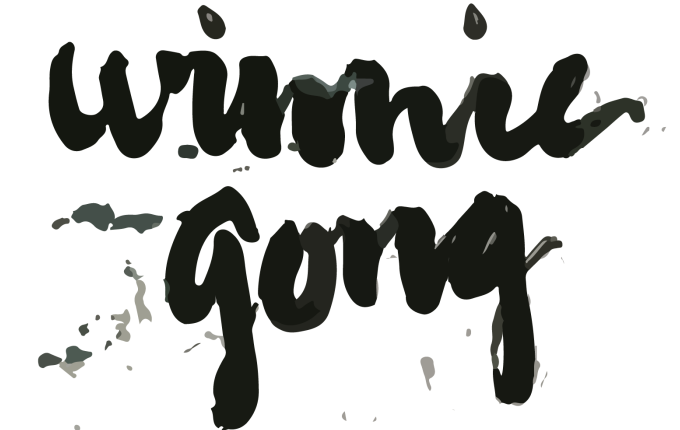 winnie
gong